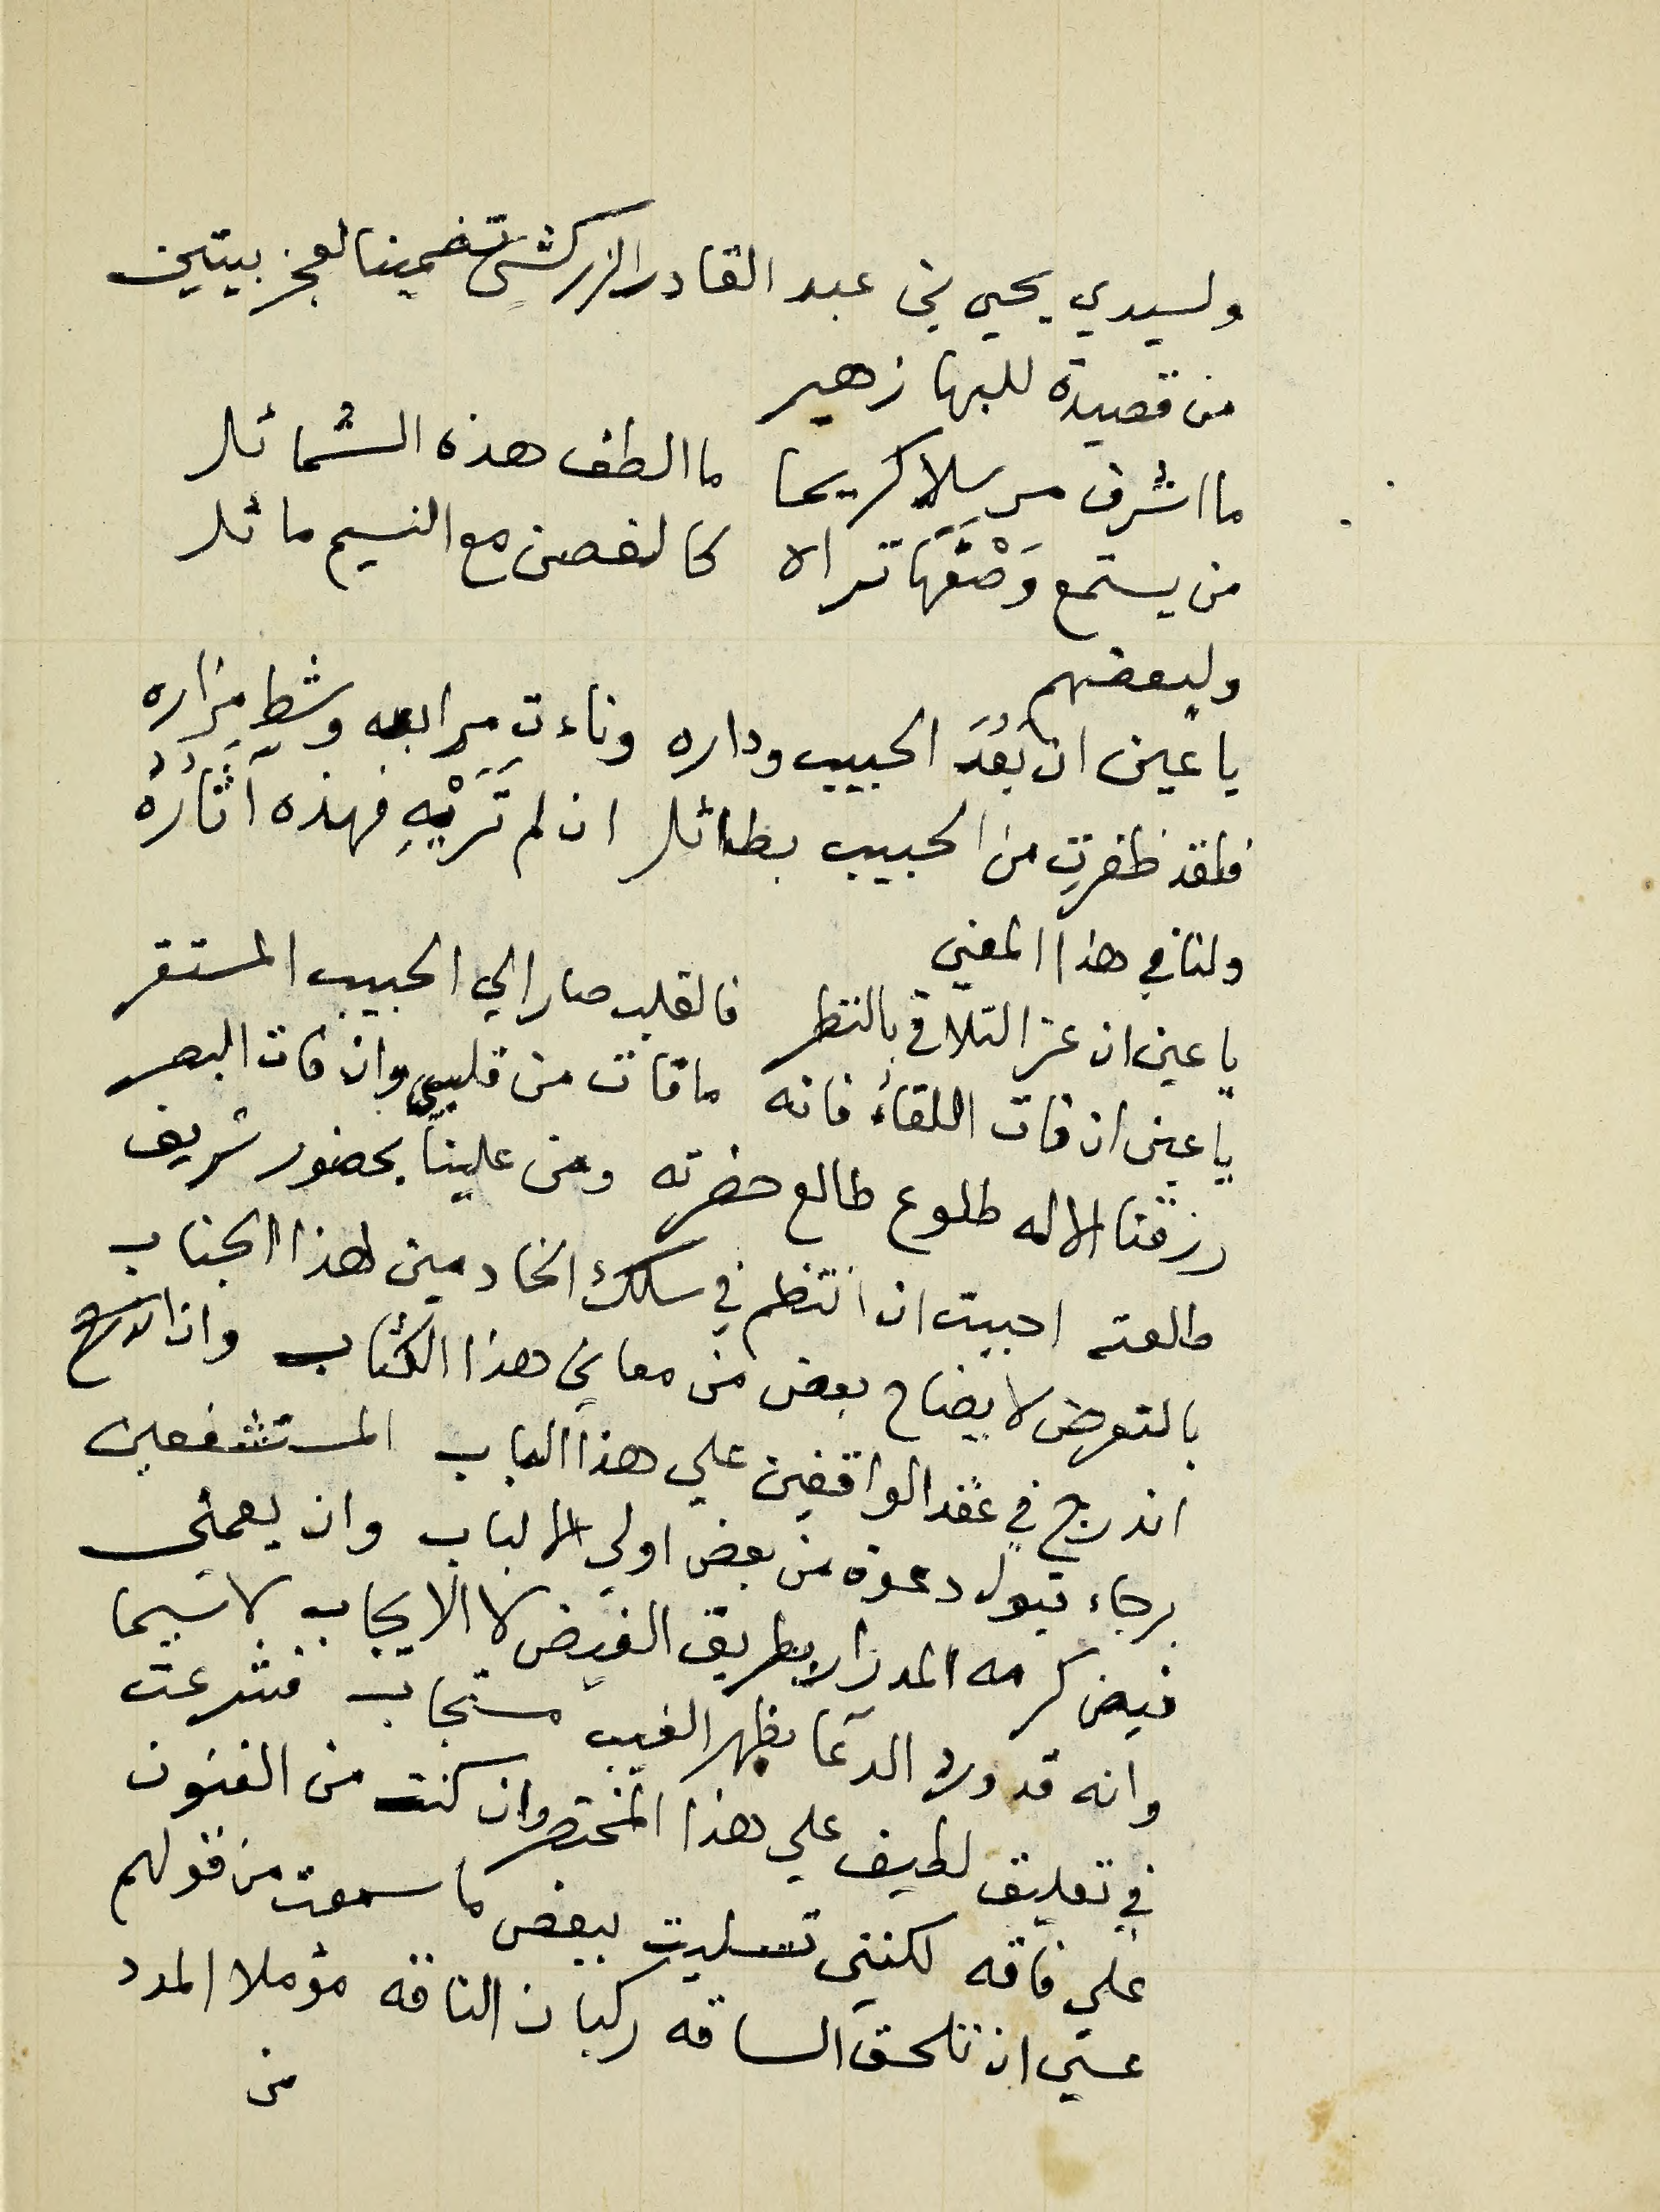 ولسيدي يحيي بن عبد القادر الزركشي تضمينا لعجز بيتين
من قصيدة للبها زهير
ما اشرف مرسلا كريما ما الطف هذه الشمائل
من يستمع وَصْفَهَا تراه كالغصن مع النسيم مائل
ولبعضهم
يا عين ان بَعُدَ الحبيب وداره وناءت مرابعه وشط مزاره
فلقد ظفرتِ من الحبيب بطائل ان لم تَرَيْهِ فهذه آثَارُهُ
ولنا في هذا المعني
يا عين ان عز التلاقي بالنظر فالقلب صار الي الحبيب المستقر
يا عين ان فات اللقاءُ فانه ما فات من قلبي وان فات البصر
رزقنا الاله طلوع طالع حضرته ومن علينا بحضور شريف
طلعته احببت ان انتظم في سلك الخادمين لهذا الجناب
بالتعرض لايضاح بعض من معاني هذا الكتاب وان
اندرج في عقد الواقفين علي هذا الباب المستشفعين
برجاء قبول دعوة من بعض اولي الالباب وان يعمني
فيض كرمه المدرار بطريق الفيض لا الايجاب لا سيما
وانه قد ورد الدعا بظهر الغيب مستجاب فشرعت
في تعليق لطيف علي هذا المختصر وان كنت من الفنون
علي فاقه لكنني تسليت ببعض ما سمعت من قولهم
عسي ان تلحق الساقه ركبان الناقه مؤملا المدد
من